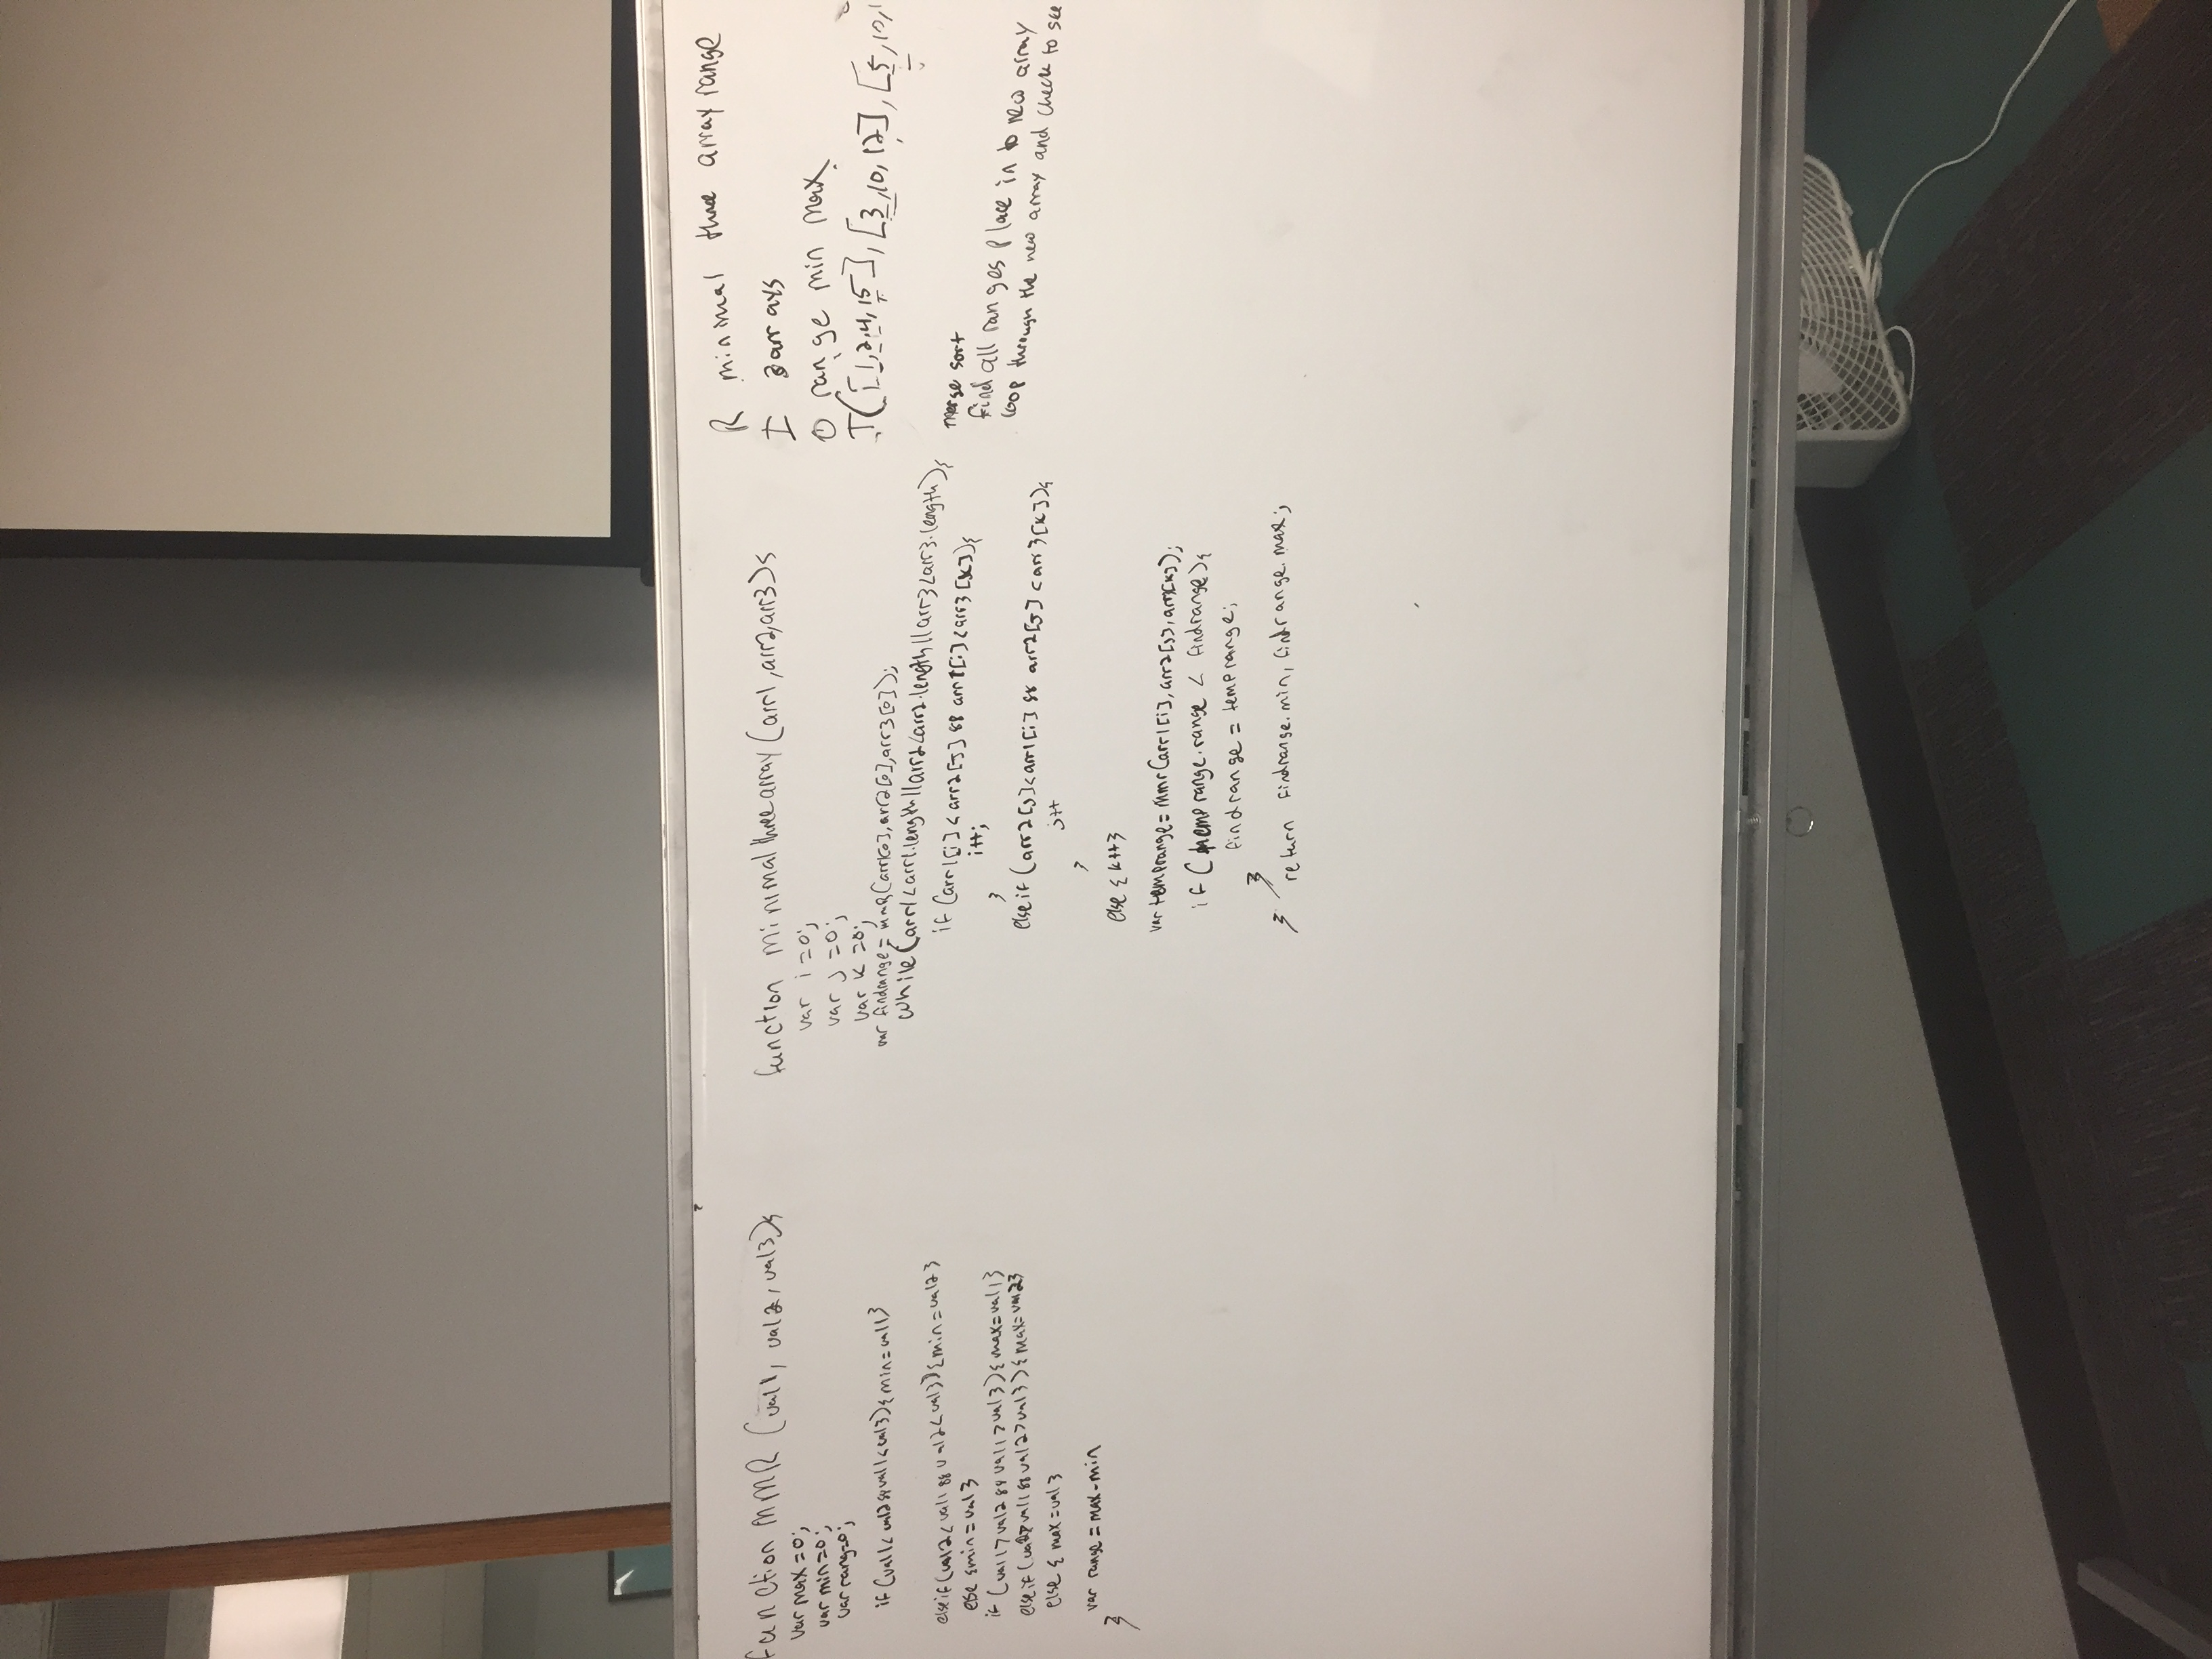 function MMR (val1, val2, val3){
var max=0;
var min=0;
var rang=0;
if (val1< val2 && val1<val3){min=val1}
else if (val2<val1 && val2<val3){min=val2}
else {min=val3
if (val1>val2 && val1>val3){max=val1}
else if (val2>val1 && val2>val3){max=val2}
else { max=val3
var range=max-min
}
function minimalthreearray(arr1,arr2,arr3){
var i=0;
var j=0;
var k=0;
var findrange=mmR(arr1[0],arr2[0],arr3[0]);
while(arr1<arr1.length||arr2<arr2.length||arr3<arr3.length){
if (arr1[i]<arr2[j] && arr1[i]<arr3[k]){
i++;
}
else if (arr2[j]<arr1[i] && arr2[j]<arr3[k]){
j++
}
else {k++}
var temprange=mmr(arr1[i],arr2[j],arr3[k]);
if (temprange.range < findrange){
findrange = temprange;
}
} return findrange.min, findrange.max;
R minimal three array range
I 3arrays
O range min max
T([1,2,4,15],[3,10,12],[5,10,1
merge sort
find all ranges place in to new array
loop through the new array and check to see